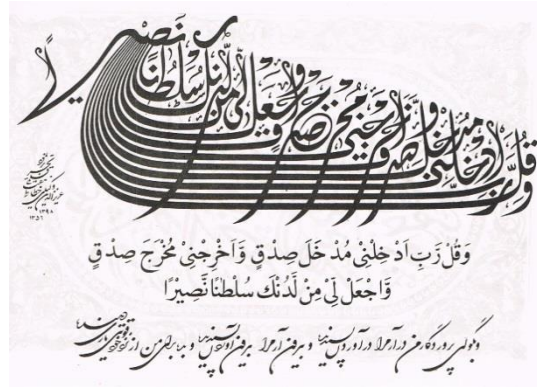 وَقُل رَّبِّ أَدْخِلْنِي مُدْخَلَ صِدْقٍ وَأَخْرِجْنِي مُخْرَجَ صِدْقٍ وَاجْعَل لِّي مِن لَّدُنكَ سُلْطَانًا نَّصِيرًا
۱۳۹۸
۱۳۵۶
وَقُلْ رَّبِّ اَدْ خِلْنِىْ مُدْ خَلَ صِدْقٍ وَّاَخْرِجْنِىْ مُخْرَجَ صِدْقٍ
وَّاجْعَلْ لِّىْ مِنْ لَّدُنْكَ سُلْطٰنًا نَّصِيرًا
وبگو ای پروردگار من در آر مرا در آوردن پسندیده و بیرون آر مرا بیرون آوردن پسندیده و بده برای من از نزد خود